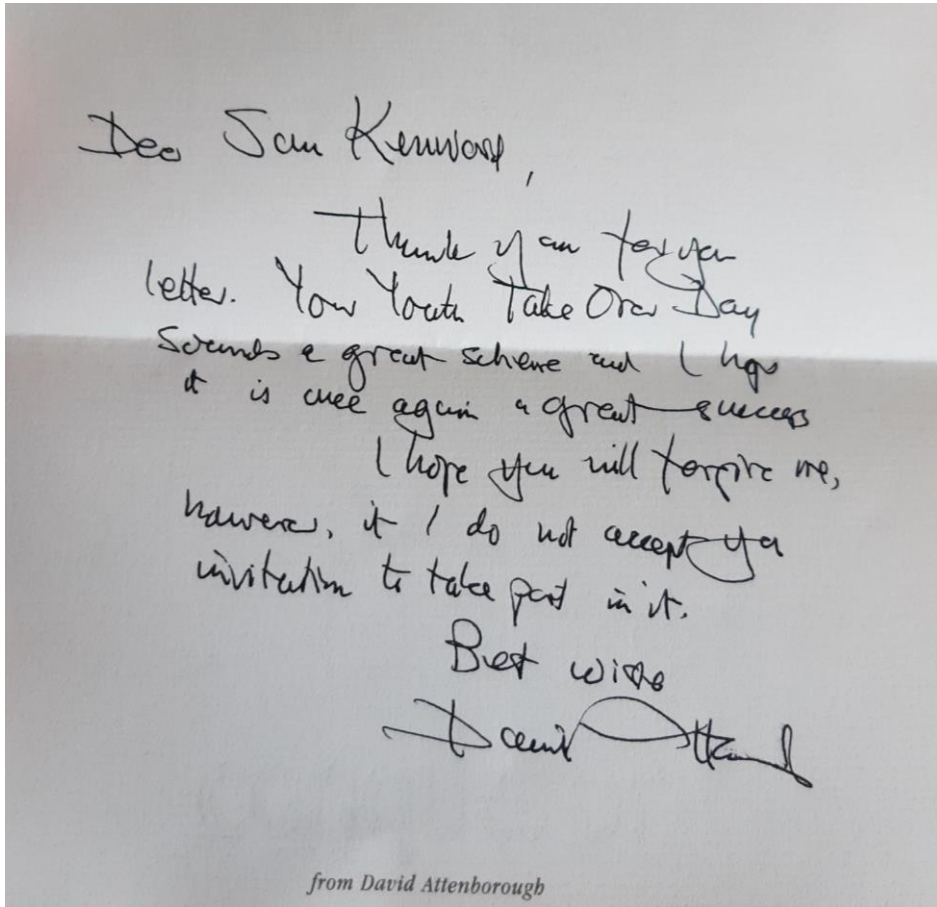 Dear Sam Kenward,
Thank you for your
letter. Your Youth Take Over Day
sounds a great scheme and I hope
it is once again a great success
I hope you will forgive me,
however, if I do not accept your
invitation to take part in it.
Best wishes
David Attenborough
from David Attenborough